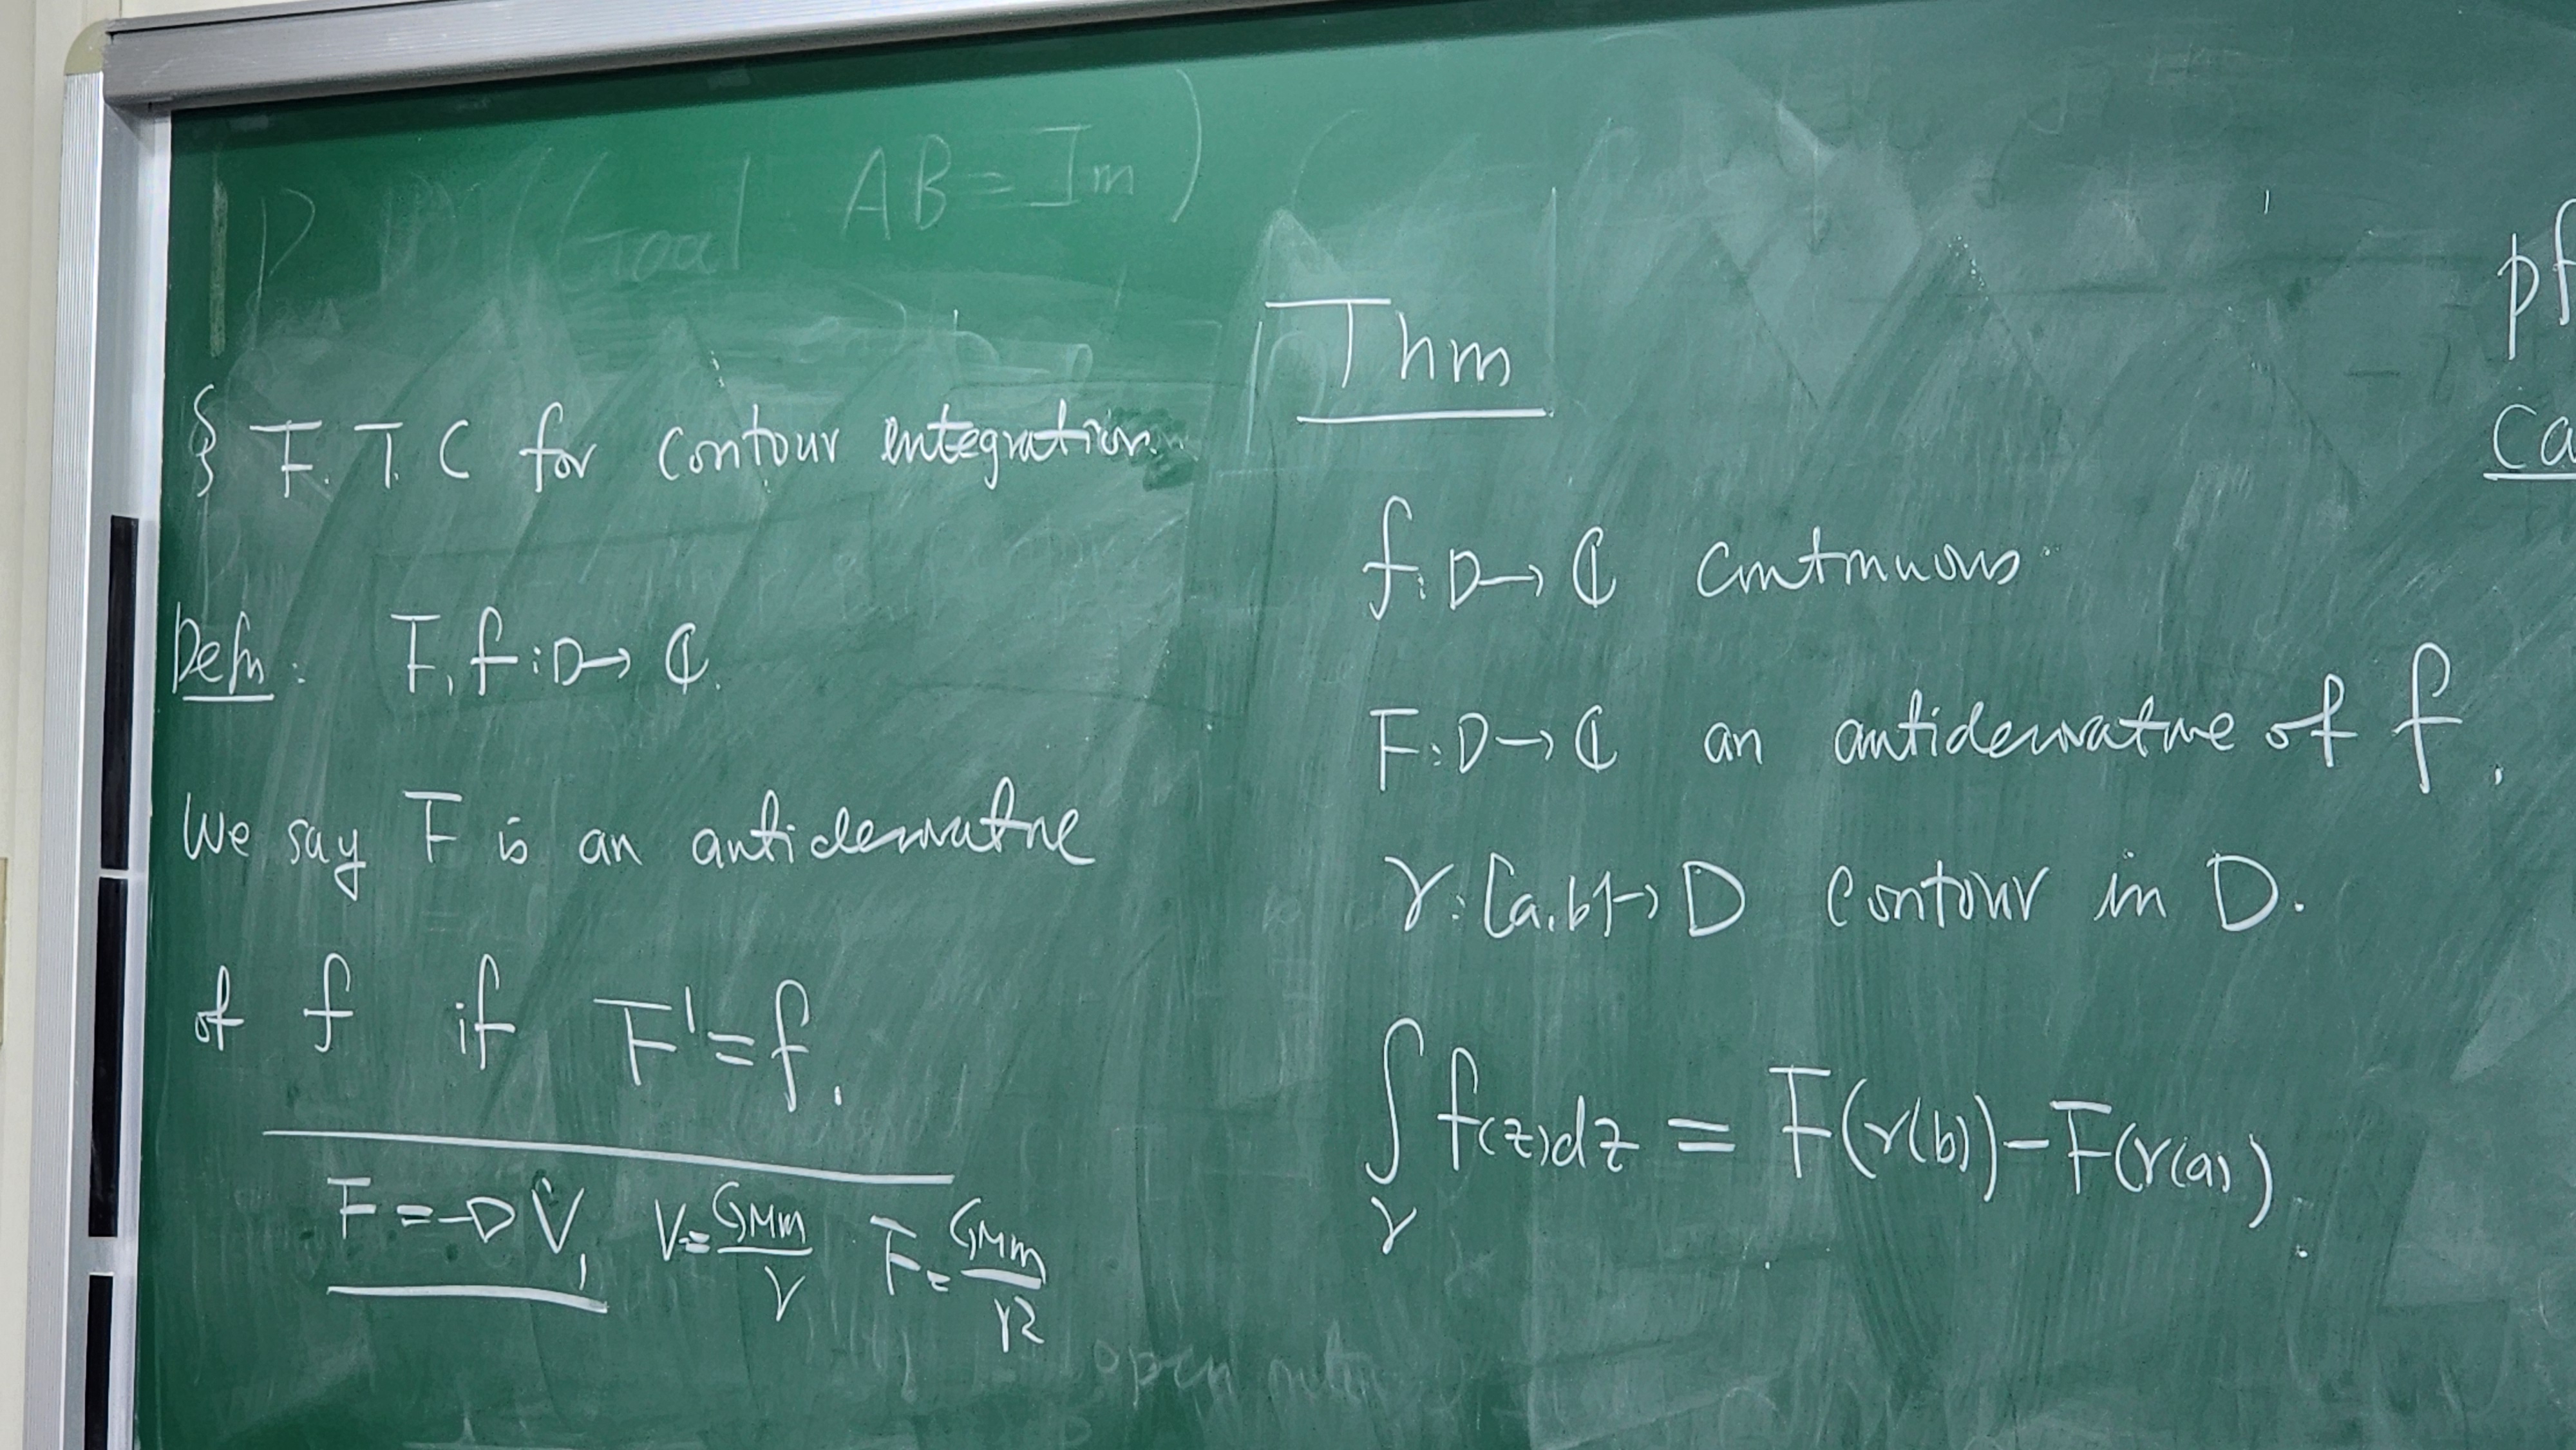 (Goal AB = Im)
§ F. T. C for contour integration
Defn: F, f : D → ℂ.
We say F is an antiderivative
of f if F' = f.
F = -D V, V = GMm/r F = GMm/r2
open
Thm
f: D → ℂ continuous.
F: D → ℂ an antiderivative of f.
γ: [a,b] → D contour in D.
∫γ f(z)dz = F(γ(b)) - F(γ(a)).
pf
Ca